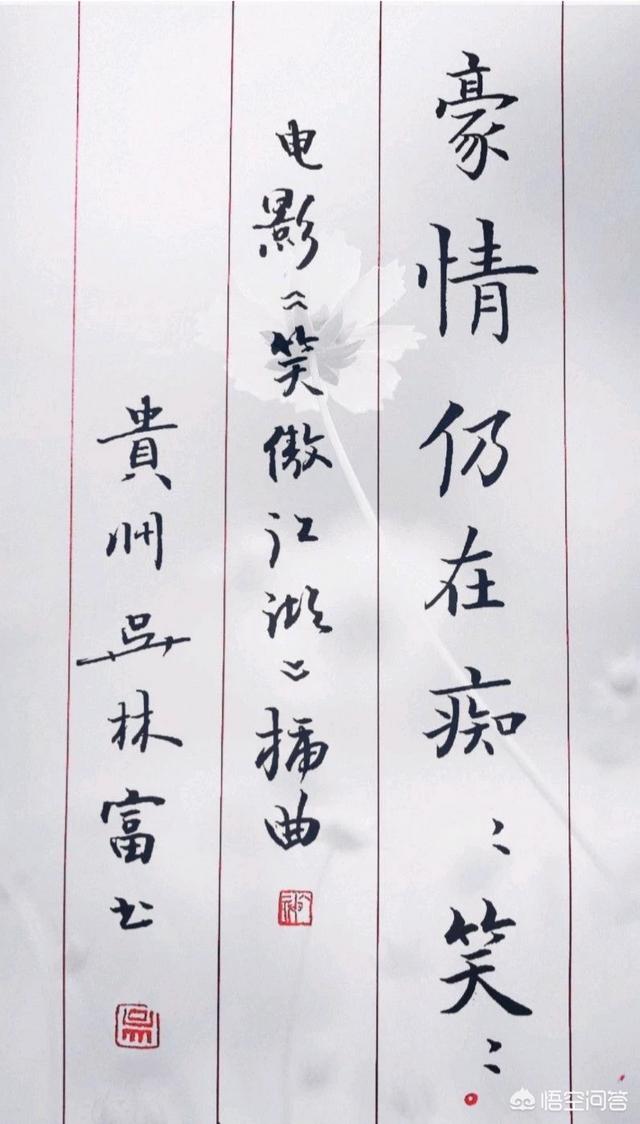 豪情仍在痴〻笑〻
电影《笑傲江湖》插曲
貴州吳林富书
悟空问答